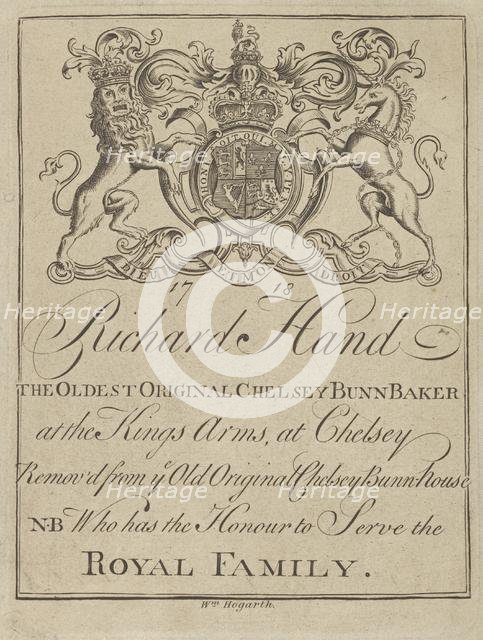 HONI SOIT QUI MAL Y PENSE
DIEU ET MON DROIT
17 18
Richard Hand
THE OLDEST ORIGINAL CHELSEY BUNN BAKER
at the Kings Arms, at Chelsey
Remov'd from yᵉ Old Original Chelsey Bunn-house
N·B Who has the Honour to Serve the
ROYAL FAMILY.
Wᵐ Hogarth.
Heritage
Heritage
Heritage
Heritage
Heritage
Heritage
C